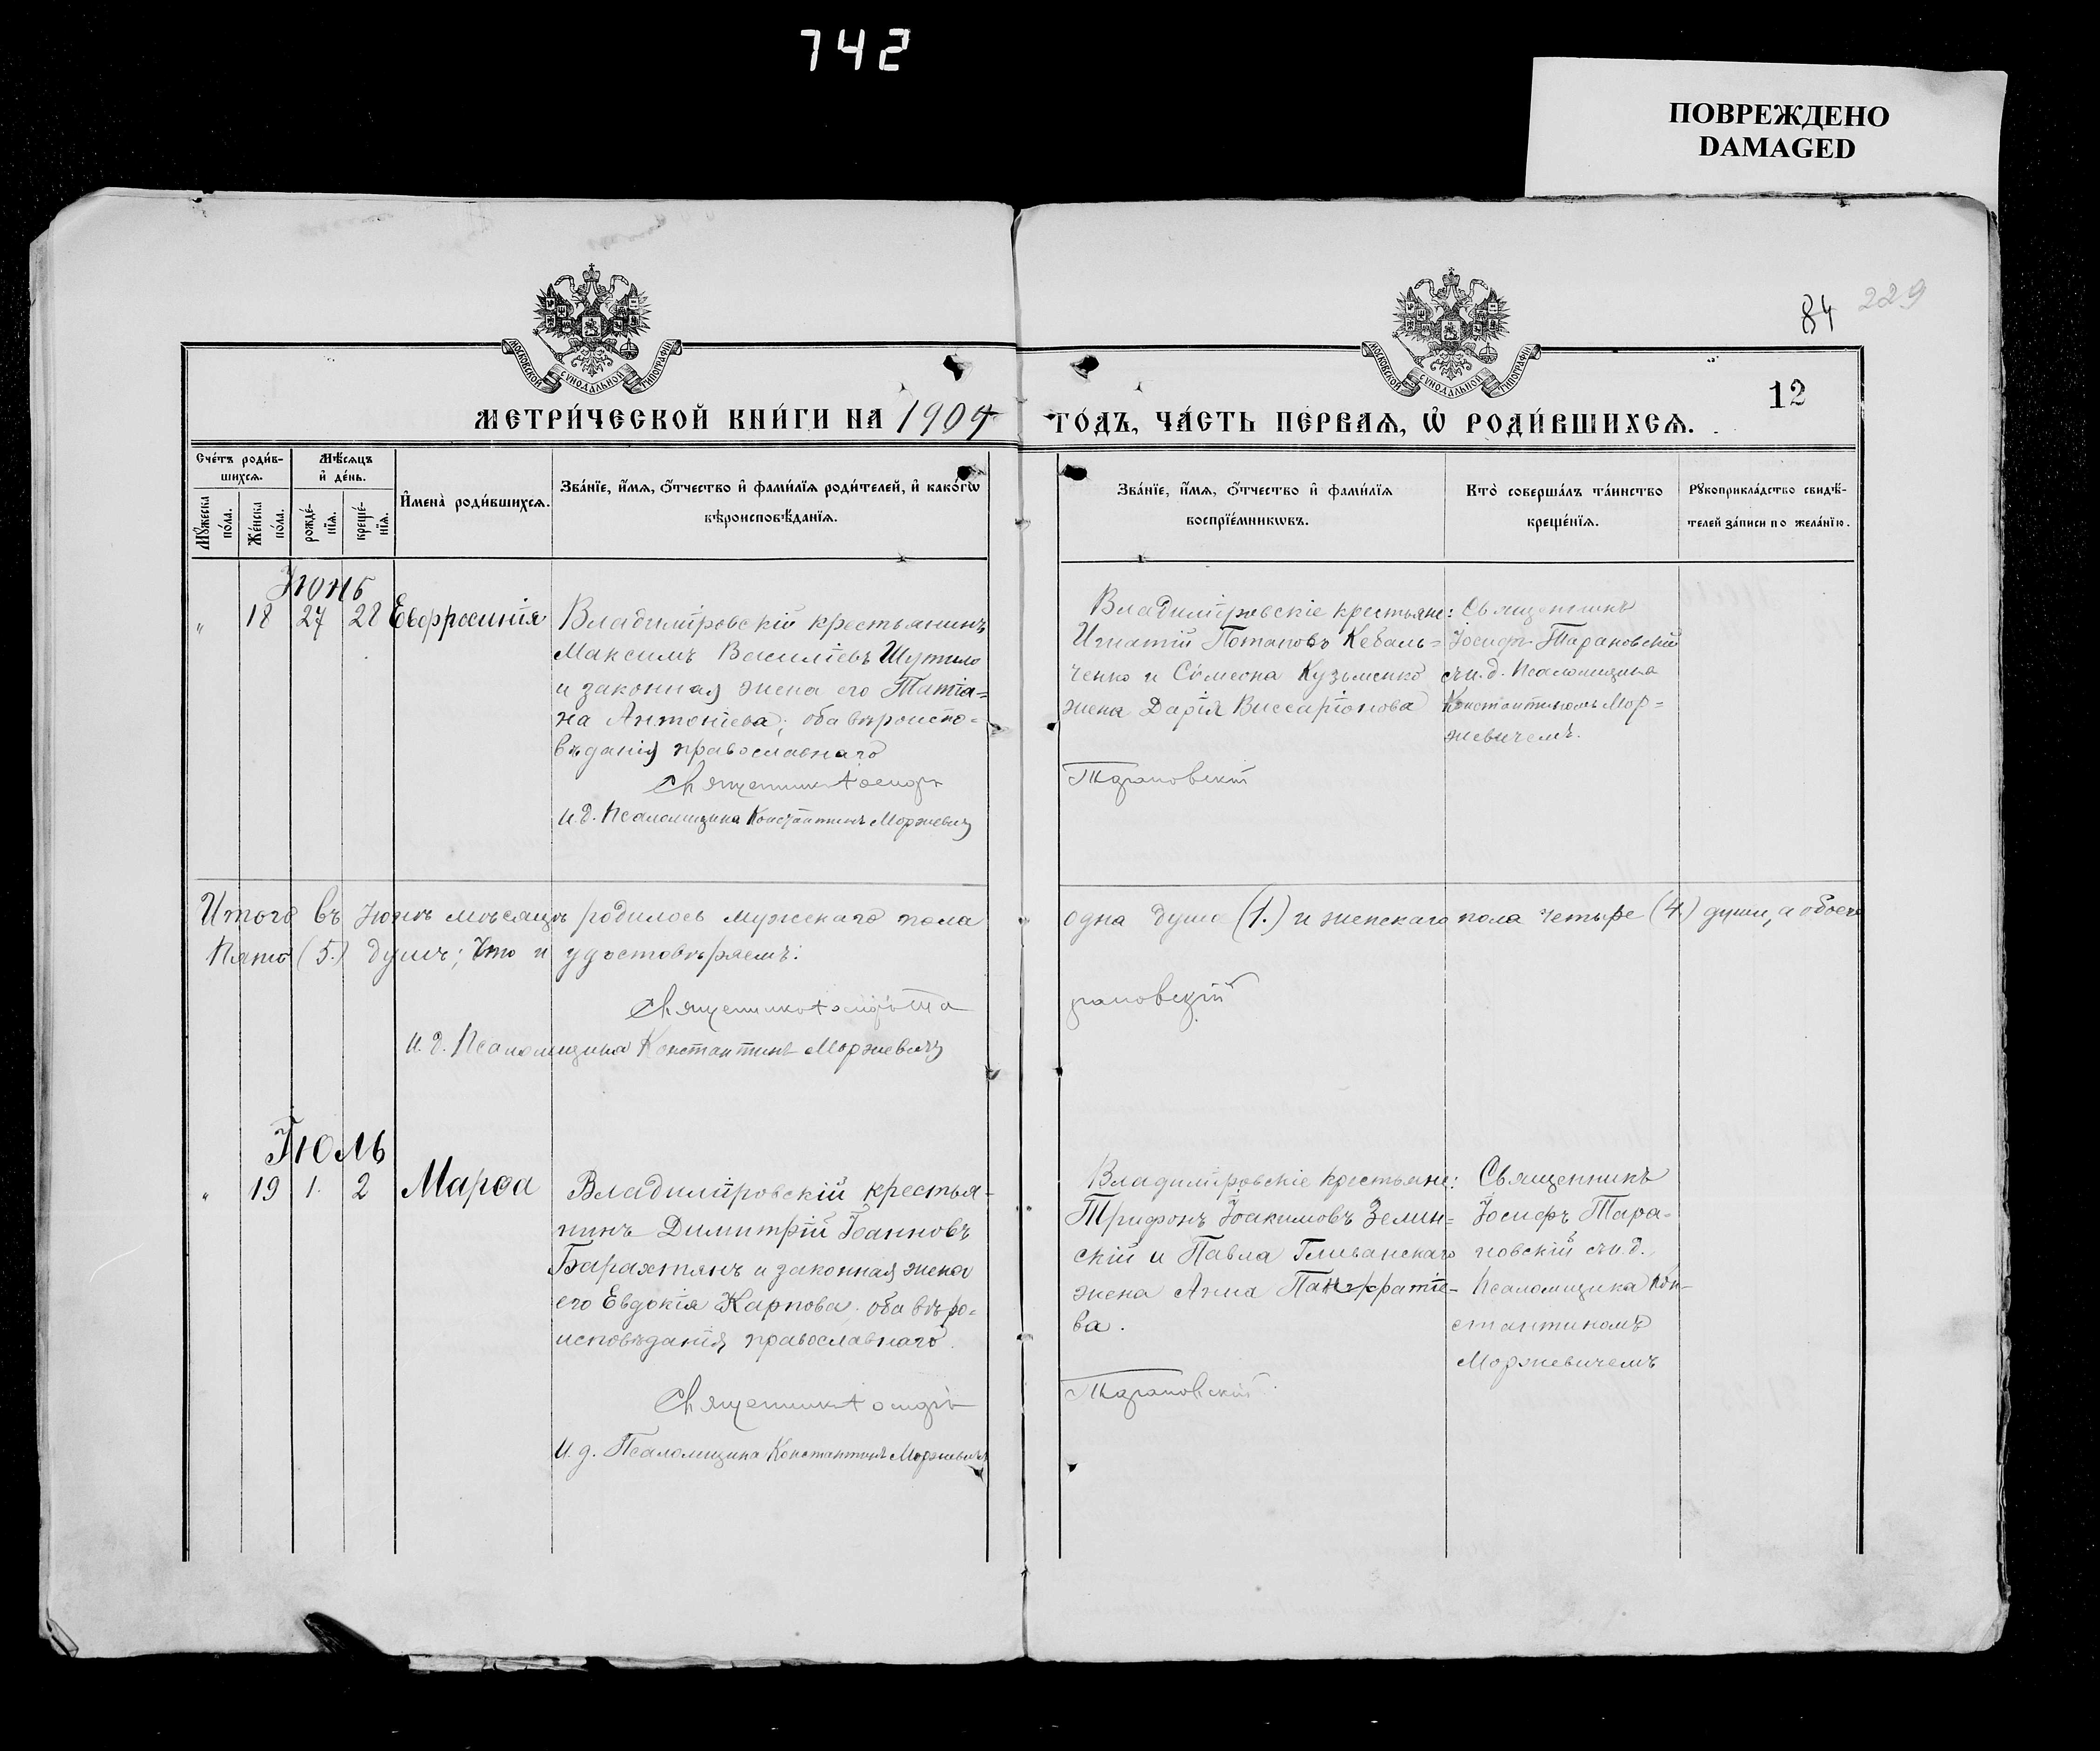 742
ПОВРЕЖДЕНО
DAMAGED
84 229
МОСКОВСКОЙ СѴНОДАЛЬНОЙ ТИПОГРАФІИ
МОСКОВСКОЙ СѴНОДАЛЬНОЙ ТИПОГРАФІИ
12
МЕТРИ́ЧЕСКОЙ КНИ́ГИ НА 1904
ГО́ДЪ, ЧА́СТЬ ПЕ́РВАѦ, Ѡ РОДИ́ВШИХСѦ.
Сче́тъ роди́в-
шихсѧ.
Мѣ́сѧцъ
и҆ де́нь.
Мꙋ́жеска по́ла.
Же́нска по́ла.
рожде́-
нїѧ.
креще́-
нїѧ.
И҆мена̀ роди́вшихсѧ.
Зва́нїе, и҆́мѧ, ѻ҆́тчество и҆ фами́лїѧ роди́телей, и҆ како́гѡ
вѣроисповѣ́данїѧ.
Зва́нїе, и҆́мѧ, ѻ҆́тчество и҆ фами́лїѧ
воспрїе́мникѡвъ.
Кто̀ соверша́лъ та́инство
креще́нїѧ.
Рꙋкоприкла́дство свидѣ́-
телей за́писи по жела́нїю.
Іюнь
" 18 27 28 Евфросинія
Владимiровскій крестьянинъ
Максимъ Василіевъ Шутило
и законная жена его Татіа=
на Антоніева; оба вѣроиспо=
вѣданія православнаго
Священникъ Іосифъ
И.д. Псаломщика Константинъ Моржевичъ
Владимiровскіе крестьяне:
Игнатій Потаповъ Кеваль=
ченко и Сѵмеона Кузьменко
жена Дарія Виссаріонова
Тарановскій
Священникъ
Іосифъ Тарановскій
съ и.д. Псаломщика
Константиномъ Мор=
жевичемъ.
Итого въ Іюнѣ мѣсяцѣ родилось мужескаго пола
одна душа (1.) и женскаго пола четыре (4.) души, а обоего
Пять (5.) душъ; Что и удостовѣряемъ:
Священникъ Іосифъ Та
рановскій
И.д. Псаломщика Константинъ Моржевичъ
Іюль
" 19 1. 2 Марѳа
Владимiровскій крестья-
нинъ Димитрій Іоанновъ
Барахтянъ и законная жена
его Евдокія Карпова; оба вѣро=
исповѣданія православнаго.
Священникъ Іосифъ
И.д. Псаломщика Константинъ Моржевичъ
Владимiровскіе крестьяне:
Трифонъ Іоакимовъ Зелин=
скій и Павла Гливанскаго
жена Анна Панкратіе-
ва.
Тарановскій
Священникъ
Іосифъ Тара-
новскій съ и.д.
Псаломщика Кон-
стантиномъ
Моржевичемъ